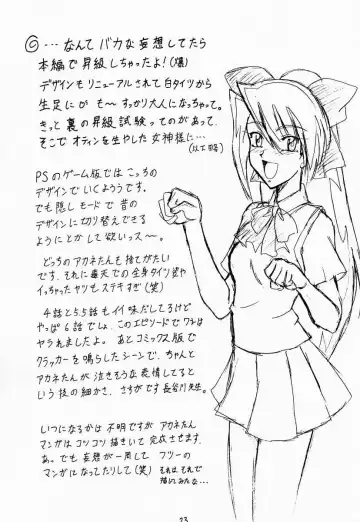 ◎…なんて バカな妄想してたら
本編で昇級しちゃったよ!(爆)
デザインもリニューアルされて白タイツから
生足にが も〜すっかり大人になっちゃって。
きっと裏の昇級試験ってのがあって、
そこでオティンを生やした女神様に…
(以下略)
PSのゲーム版ではこっちの
デザインでいくようです。
でも隠しモードで昔の
デザインに切り替えできる
ようにとかして欲しいっス〜。
どっちのアカネたんも捨てがたい
です。それに露天での全身タイツ姿や
イっちゃったヤツもステキすぎ(笑)
4話と5.5話もイイ味だしてるけど
やっぱ6話でしょ、このエピソードでワシは
ヤラれましたよ。あとコミックス版で
クラッカーを鳴らしたシーンで、ちゃんと
アカネたんが泣きそうな表情してると
いう技の細かさ、さすがです長谷川先生。
いつになるかは不明ですがアカネたん
マンガはコツコツ描きいて完成させます。
あ。でも妄想が一周して フツーの
マンガになってたりして(笑) それはそれで
描いてみたな…
23